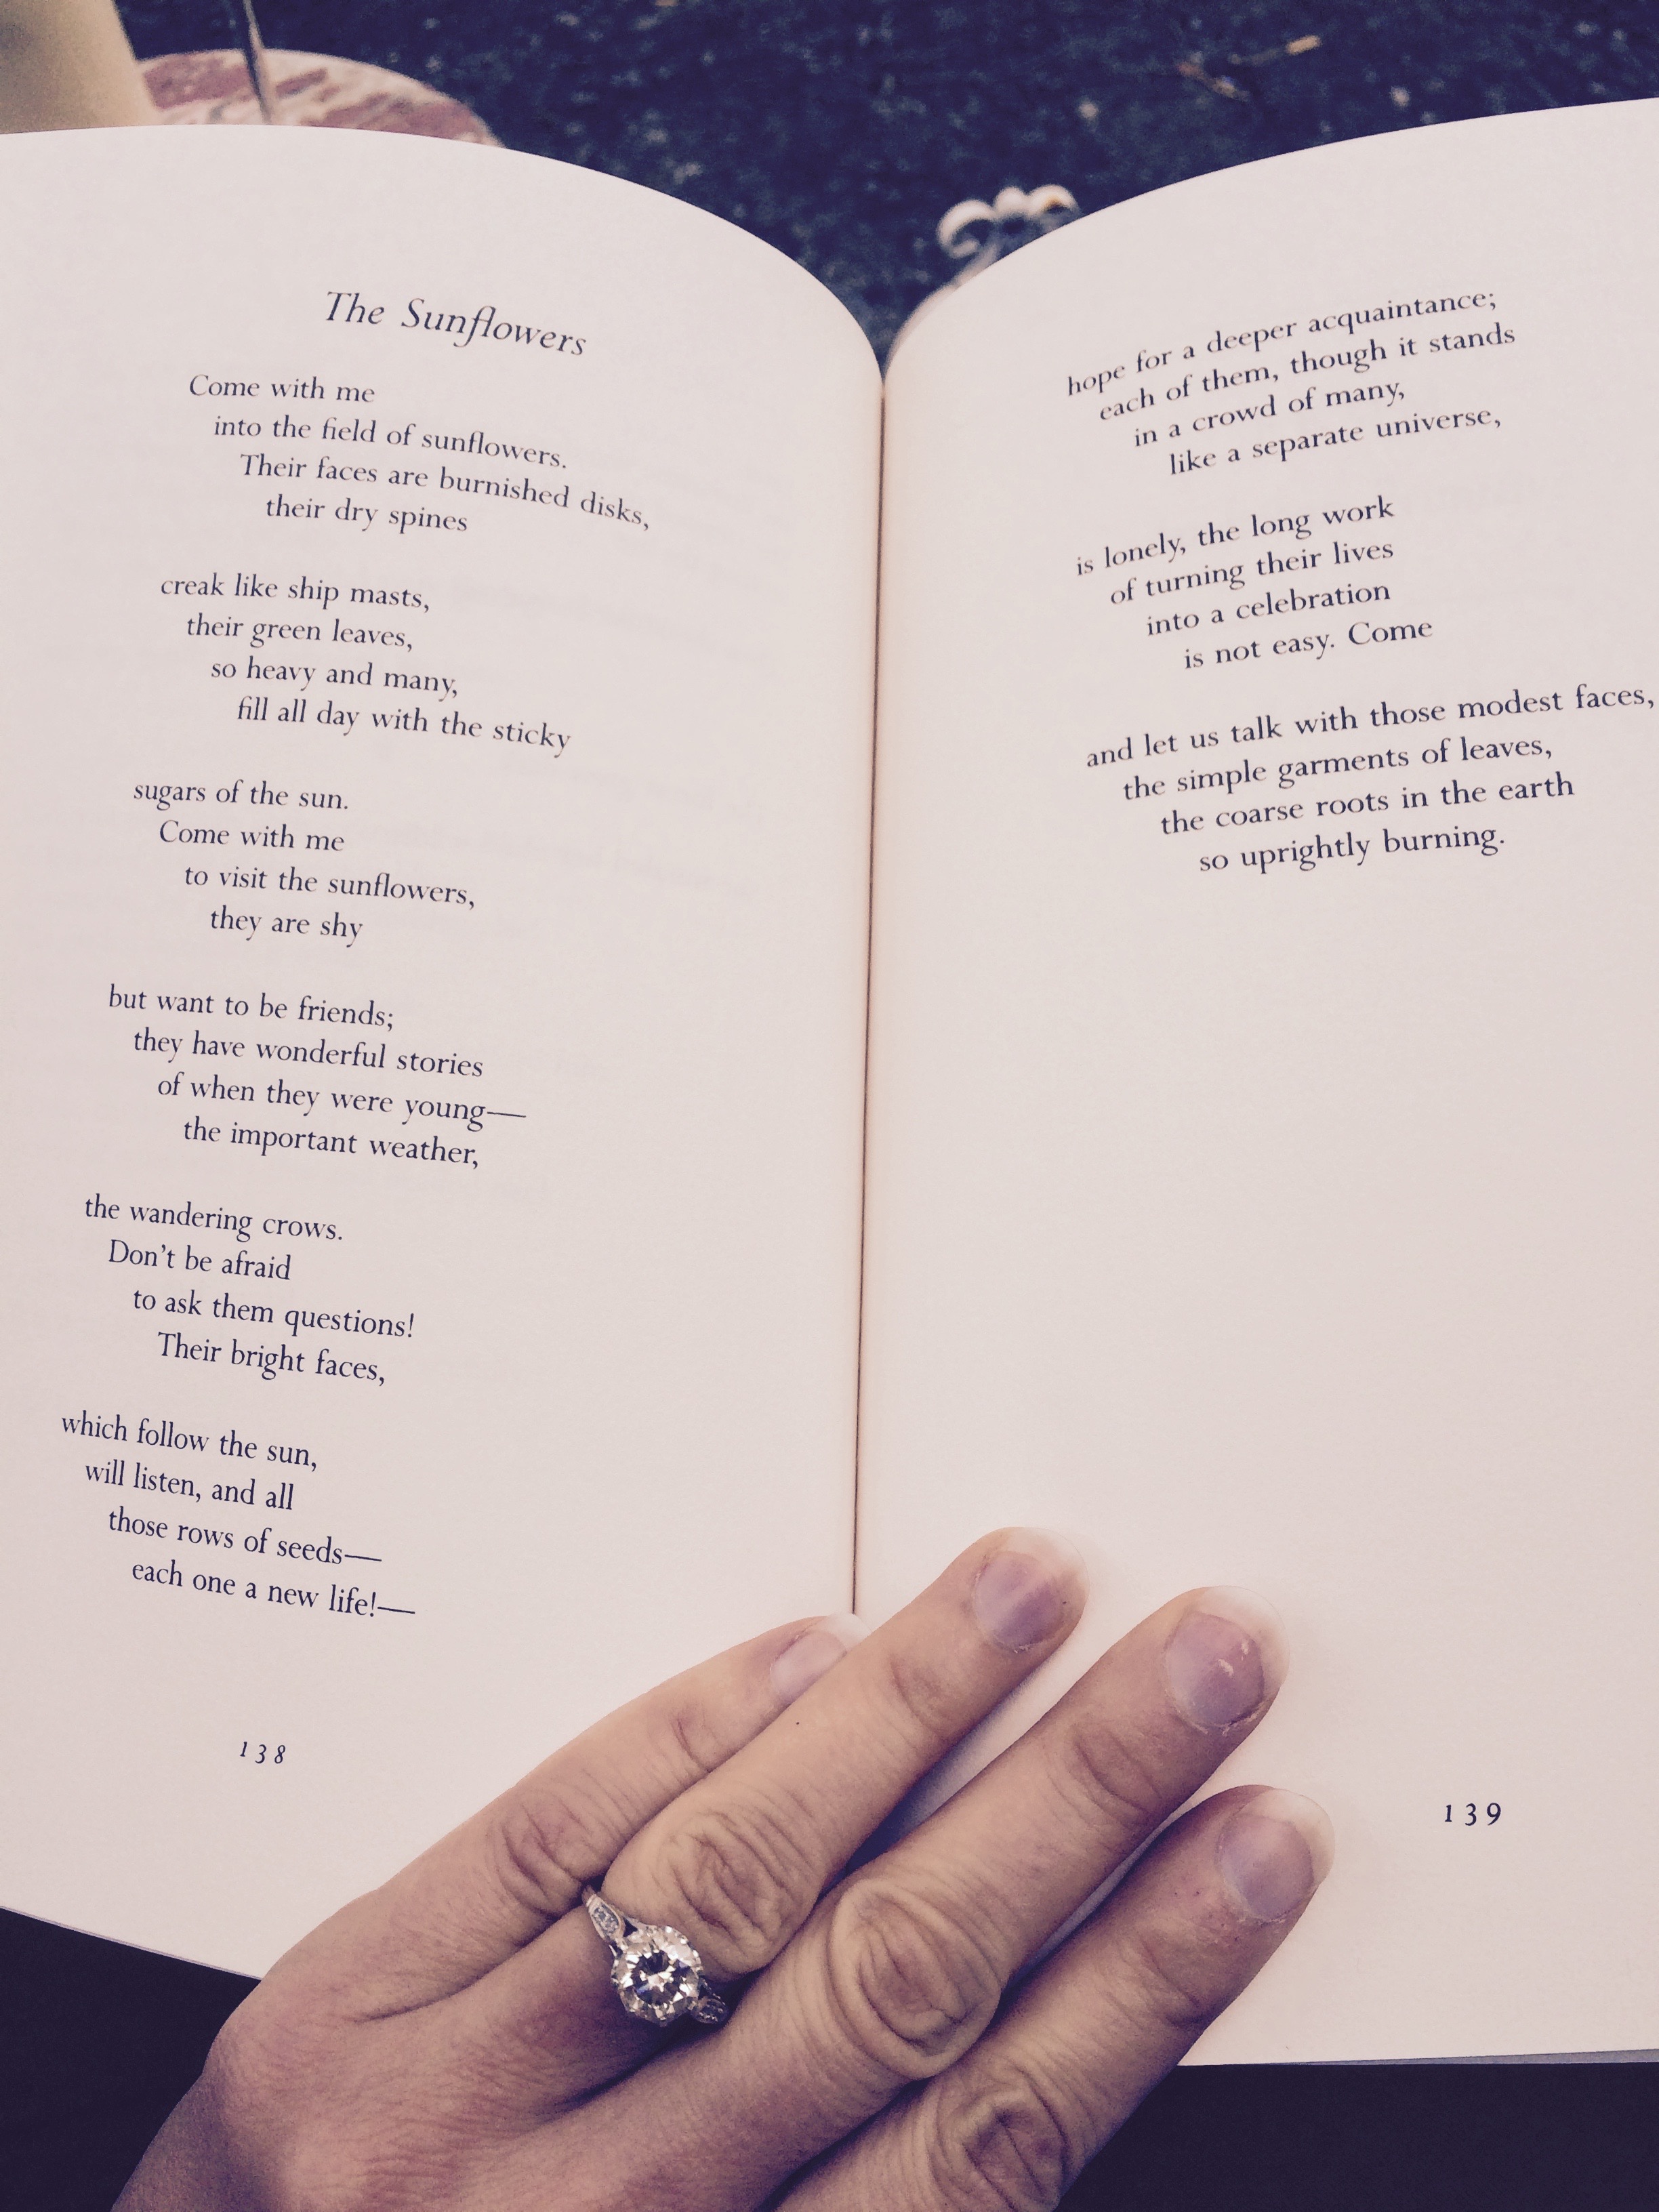 The Sunflowers
Come with me
into the field of sunflowers.
Their faces are burnished disks,
their dry spines
creak like ship masts,
their green leaves,
so heavy and many,
fill all day with the sticky
sugars of the sun.
Come with me
to visit the sunflowers,
they are shy
but want to be friends;
they have wonderful stories
of when they were young—
the important weather,
the wandering crows.
Don't be afraid
to ask them questions!
Their bright faces,
which follow the sun,
will listen, and all
those rows of seeds—
each one a new life!—
138
hope for a deeper acquaintance;
each of them, though it stands
in a crowd of many,
like a separate universe,
is lonely, the long work
of turning their lives
into a celebration
is not easy. Come
and let us talk with those modest faces,
the simple garments of leaves,
the coarse roots in the earth
so uprightly burning.
139